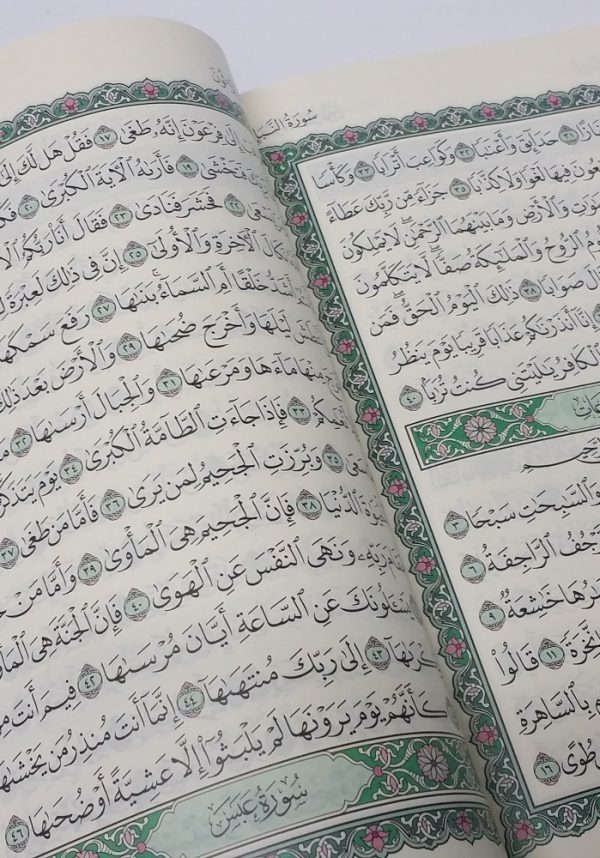 سُورَةُ
حَدَآئِقَ وَأَعْنَٰبًا ٣٢ وَكَوَاعِبَ أَتْرَابًا ٣٣ وَكَأْسًا
فِيهَا لَغْوًا وَلَا كِذَّٰبًا ٣٥ جَزَآءً مِّن رَّبِّكَ عَطَآءً
وَٱلْأَرْضِ وَمَا بَيْنَهُمَا ٱلرَّحْمَٰنِ ۖ لَا يَمْلِكُونَ
ٱلرُّوحُ وَٱلْمَلَٰٓئِكَةُ صَفًّا ۖ لَّا يَتَكَلَّمُونَ
صَوَابًا ٣٨ ذَٰلِكَ ٱلْيَوْمُ ٱلْحَقُّ ۖ فَمَن
إِنَّآ أَنذَرْنَٰكُمْ عَذَابًا قَرِيبًا يَوْمَ يَنظُرُ
ٱلْكَافِرُ يَٰلَيْتَنِى كُنتُ تُرَٰبًۢا ٤٠
وَٱلسَّٰبِحَٰتِ سَبْحًا ٣
تَرْجُفُ ٱلرَّاجِفَةُ ٦
خَٰشِعَةٌ ٩
نَّخِرَةً ١١ قَالُوا۟
بِٱلسَّاهِرَةِ
طُوًى ١٦
إِلَىٰ فِرْعَوْنَ إِنَّهُۥ طَغَىٰ ١٧ فَقُلْ هَل لَّكَ إِلَىٰٓ
فَتَخْشَىٰ ١٩ فَأَرَىٰهُ ٱلْءَايَةَ ٱلْكُبْرَىٰ ٢٠
٢٢ فَحَشَرَ فَنَادَىٰ ٢٣ فَقَالَ أَنَا۠ رَبُّكُمُ
نَكَالَ ٱلْءَاخِرَةِ وَٱلْأُولَىٰٓ ٢٥ إِنَّ فِى ذَٰلِكَ لَعِبْرَةً
أَشَدُّ خَلْقًا أَمِ ٱلسَّمَآءُ ۚ بَنَىٰهَا ٢٧ رَفَعَ سَمْكَهَا
لَيْلَهَا وَأَخْرَجَ ضُحَىٰهَا ٢٩ وَٱلْأَرْضَ بَعْدَ ذَٰلِكَ
مِنْهَا مَآءَهَا وَمَرْعَىٰهَا ٣١ وَٱلْجِبَالَ أَرْسَىٰهَا ٣٢
٣٣ فَإِذَا جَآءَتِ ٱلطَّآمَّةُ ٱلْكُبْرَىٰ ٣٤ يَوْمَ يَتَذَكَّرُ
٣٥ وَبُرِّزَتِ ٱلْجَحِيمُ لِمَن يَرَىٰ ٣٦ فَأَمَّا مَن طَغَىٰ ٣٧
ٱلدُّنْيَا ٣٨ فَإِنَّ ٱلْجَحِيمَ هِىَ ٱلْمَأْوَىٰ ٣٩ وَأَمَّا مَنْ
رَبِّهِۦ وَنَهَى ٱلنَّفْسَ عَنِ ٱلْهَوَىٰ ٤٠ فَإِنَّ ٱلْجَنَّةَ هِىَ
يَسْـَٔلُونَكَ عَنِ ٱلسَّاعَةِ أَيَّانَ مُرْسَىٰهَا ٤٢ فِيمَ أَنتَ
٤٣ إِلَىٰ رَبِّكَ مُنتَهَىٰهَآ ٤٤ إِنَّمَآ أَنتَ مُنذِرُ مَن يَخْشَىٰهَا
كَأَنَّهُمْ يَوْمَ يَرَوْنَهَا لَمْ يَلْبَثُوٓا۟ إِلَّا عَشِيَّةً أَوْ ضُحَىٰهَا ٤٦
سُورَةُ عَبَسَ